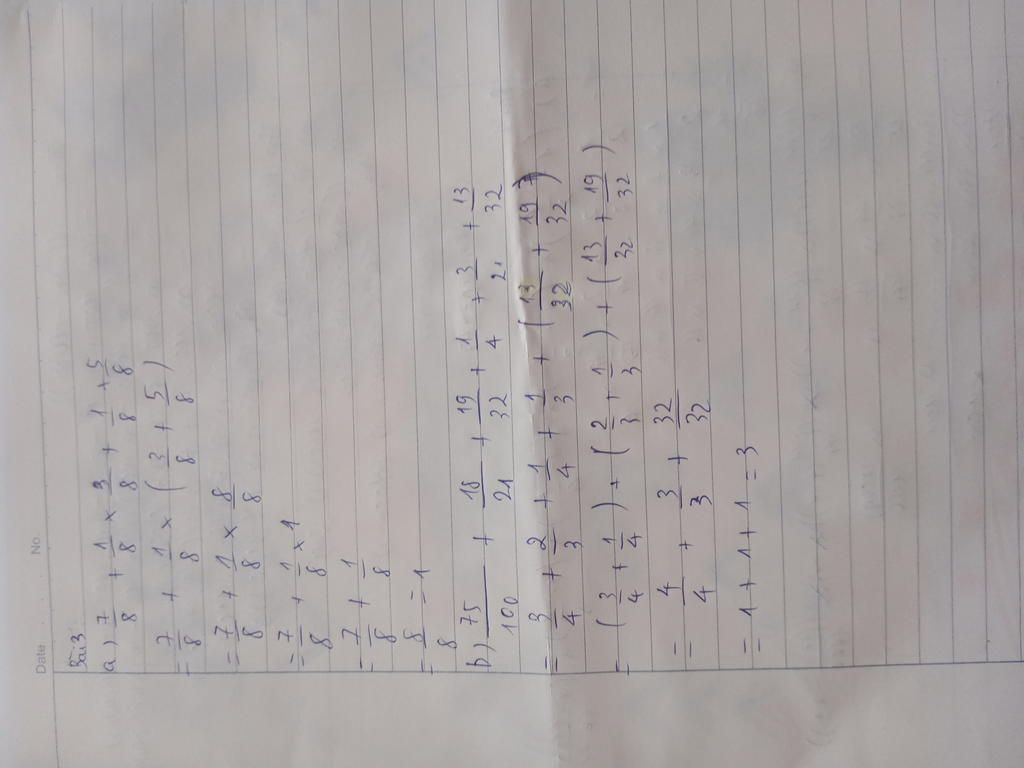 Date No.
Bài 3
a) 7/8 + 1/8 × 3/8 + 1/8 × 5/8
= 7/8 + 1/8 × ( 3/8 + 5/8 )
= 7/8 + 1/8 × 8/8
= 7/8 + 1/8 × 1
= 7/8 + 1/8
= 8/8 = 1
b) 75/100 + 18/21 + 19/32 + 1/4 + 3/21 + 13/32
= 3/4 + 2/3 + 1/4 + 1/3 + ( 13/32 + 19/32 )
= ( 3/4 + 1/4 ) + ( 2/3 + 1/3 ) + ( 13/32 + 19/32 )
= 4/4 + 3/3 + 32/32
= 1 + 1 + 1 = 3